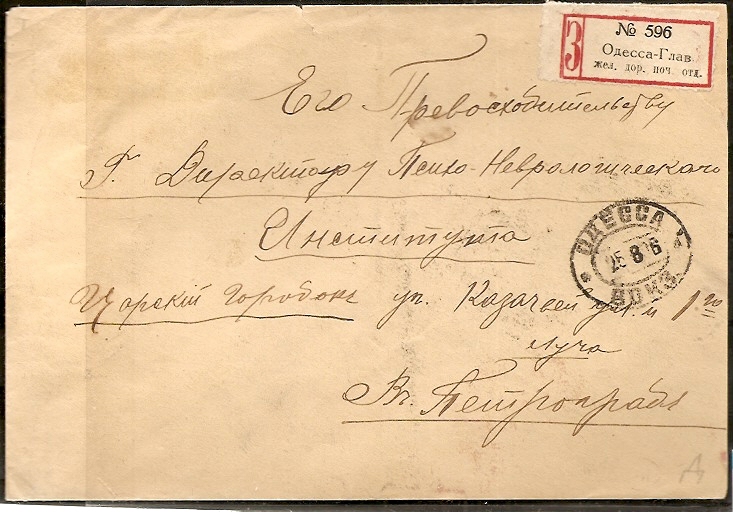 З
№ 596
Одесса-Глав
жел. дор. поч. отд.
Его Превосходительству
Г. Директору Психо-Неврологическаго
Института
Царскій городокъ уг. Казачьей ул. и 1го
луча
Въ Петроградъ
ОДЕССА
25 8 16
ВОКЗ